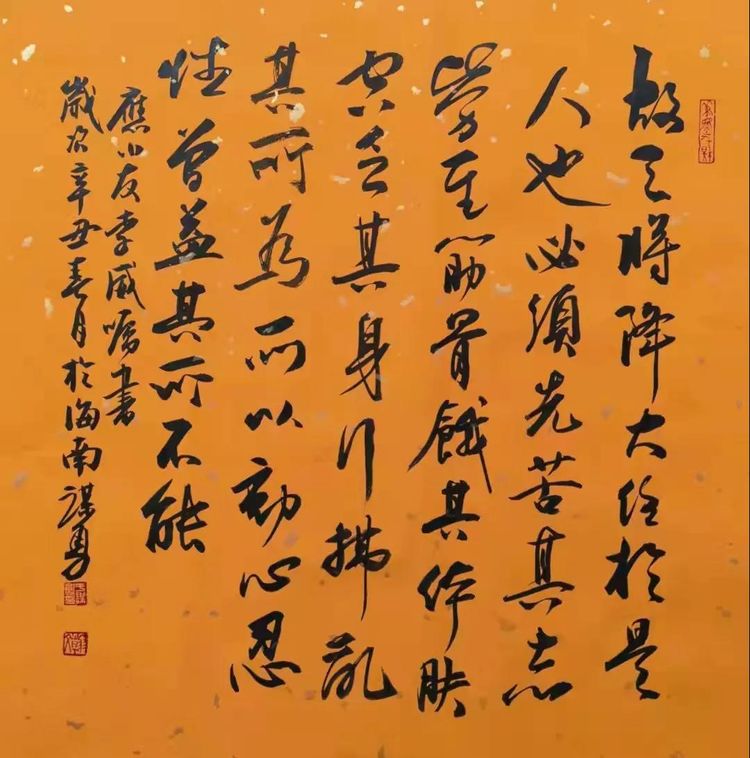 故天將降大任於是
人也必須先苦其志
劳其筋骨餓其体肤
空乏其身行拂乱
其所为所以動心忍
性曾益其所不能
應小友李威嘱書
歲次辛丑春月於海南谋勇